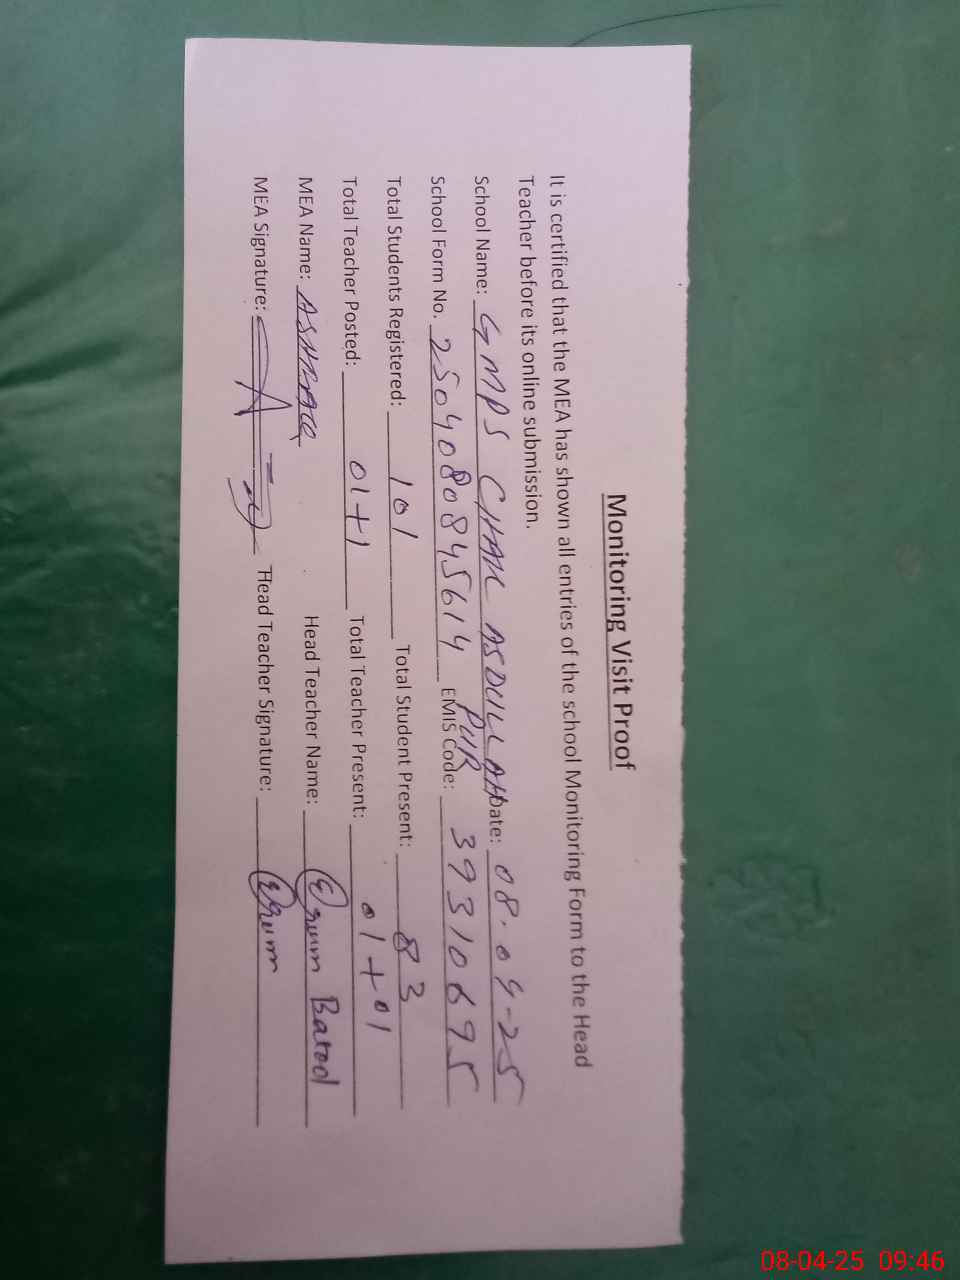 Monitoring Visit Proof
It is certified that the MEA has shown all entries of the school Monitoring Form to the Head
Teacher before its online submission.
School Name: GMPS CHAK ASDULLAH PUR Date: 08.04-25
School Form No. 2504080845614 EMIS Code: 39310695
Total Students Registered: 101 Total Student Present: 83
Total Teacher Posted: 01+1 Total Teacher Present: 01+01
MEA Name: Head Teacher Name:
MEA Signature: Head Teacher Signature:
08-04-25 09:46